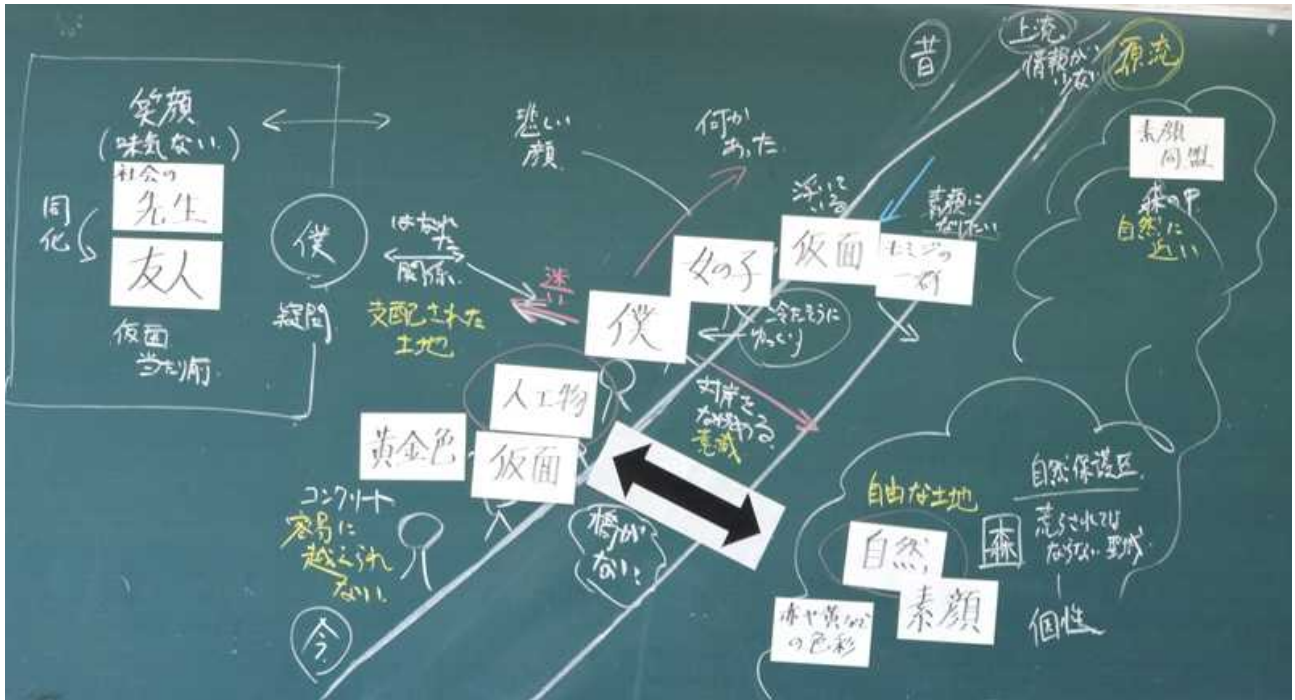 笑顔
(味気ない)
社会の
先生
友人
同化
仮面
当たり前
僕
疑問
はなれた
関係
支配された
土地
迷い
悲しい
顔
何か
あった
昔
上流
情報が
少ない
源流
浮いて
いる
素顔に
なりたい
仮面
モミジの
一群
女の子
僕
冷たそうに
ゆっくり
対岸を
ながめる
意識
人工物
黄金色
仮面
コンクリート
容易に
越えられ
ない
橋が
ない
今
素顔
同盟
森の中
自然に
近い
自由な土地
自然
素顔
森
赤や黄などの
色彩
自然保護区
荒らされては
ならない
個性